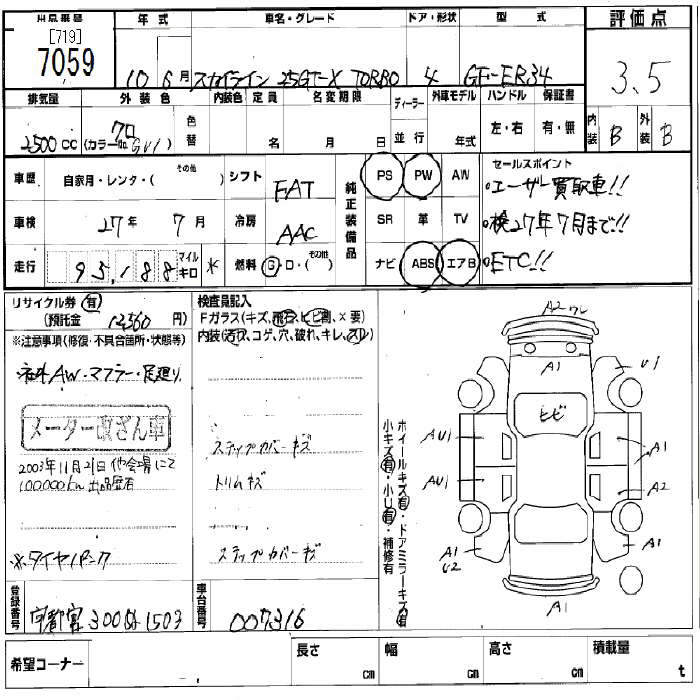 出品番号 年式 車名・グレード ドア・形状 型式 評価点
[719]
7059 10 6月 スカイライン 25GT-X TURBO 4 GF-ER34 3.5
排気量 外装色 内装色 定員 名変期限 ディーラー 外車モデル ハンドル 保証書 内装 B 外装 B
2500cc クロ (カラーNo. GV1) 色替 名 月 日 並行 年式 左・右 有・無
車歴 自家用・レンタ・(その他) シフト FAT 純正装備品 PS PW AW セールスポイント
。ユーザー買取車!!
車検 27年 7月 冷房 AAC SR 革 TV 。検27年7月まで!!
走行 95,188 マイル キロ * 燃料 G・D・(その他) ナビ ABS エアB 。ETC!!
リサイクル券 有
(預託金 12,560 円)
※注意事項(修復・不具合箇所・状態等)
社外AW・マフラー・足廻り
メーター改ざん車
2003年11月21日 他会場にて
100000km 出品歴有
※タイヤパンク
検査員記入
Fガラス(キズ,飛石,ヒビ割,×要)
内装(汚れ,コゲ,穴,破れ,キレ,スレ)
ステップカバーキズ
トリムキズ
ステップカバーキズ
ホイールキズ有・ドアミラーキズ有
小キズ有・小U有・補修有
A2 ワレ
A1 U1
ヒビ
AU1 A1
AU1 A2
A1 U2 A1
A1
登録番号 宇都宮 300 1503 車台番号 007316
希望コーナー 長さ cm 幅 cm 高さ cm 積載量 t